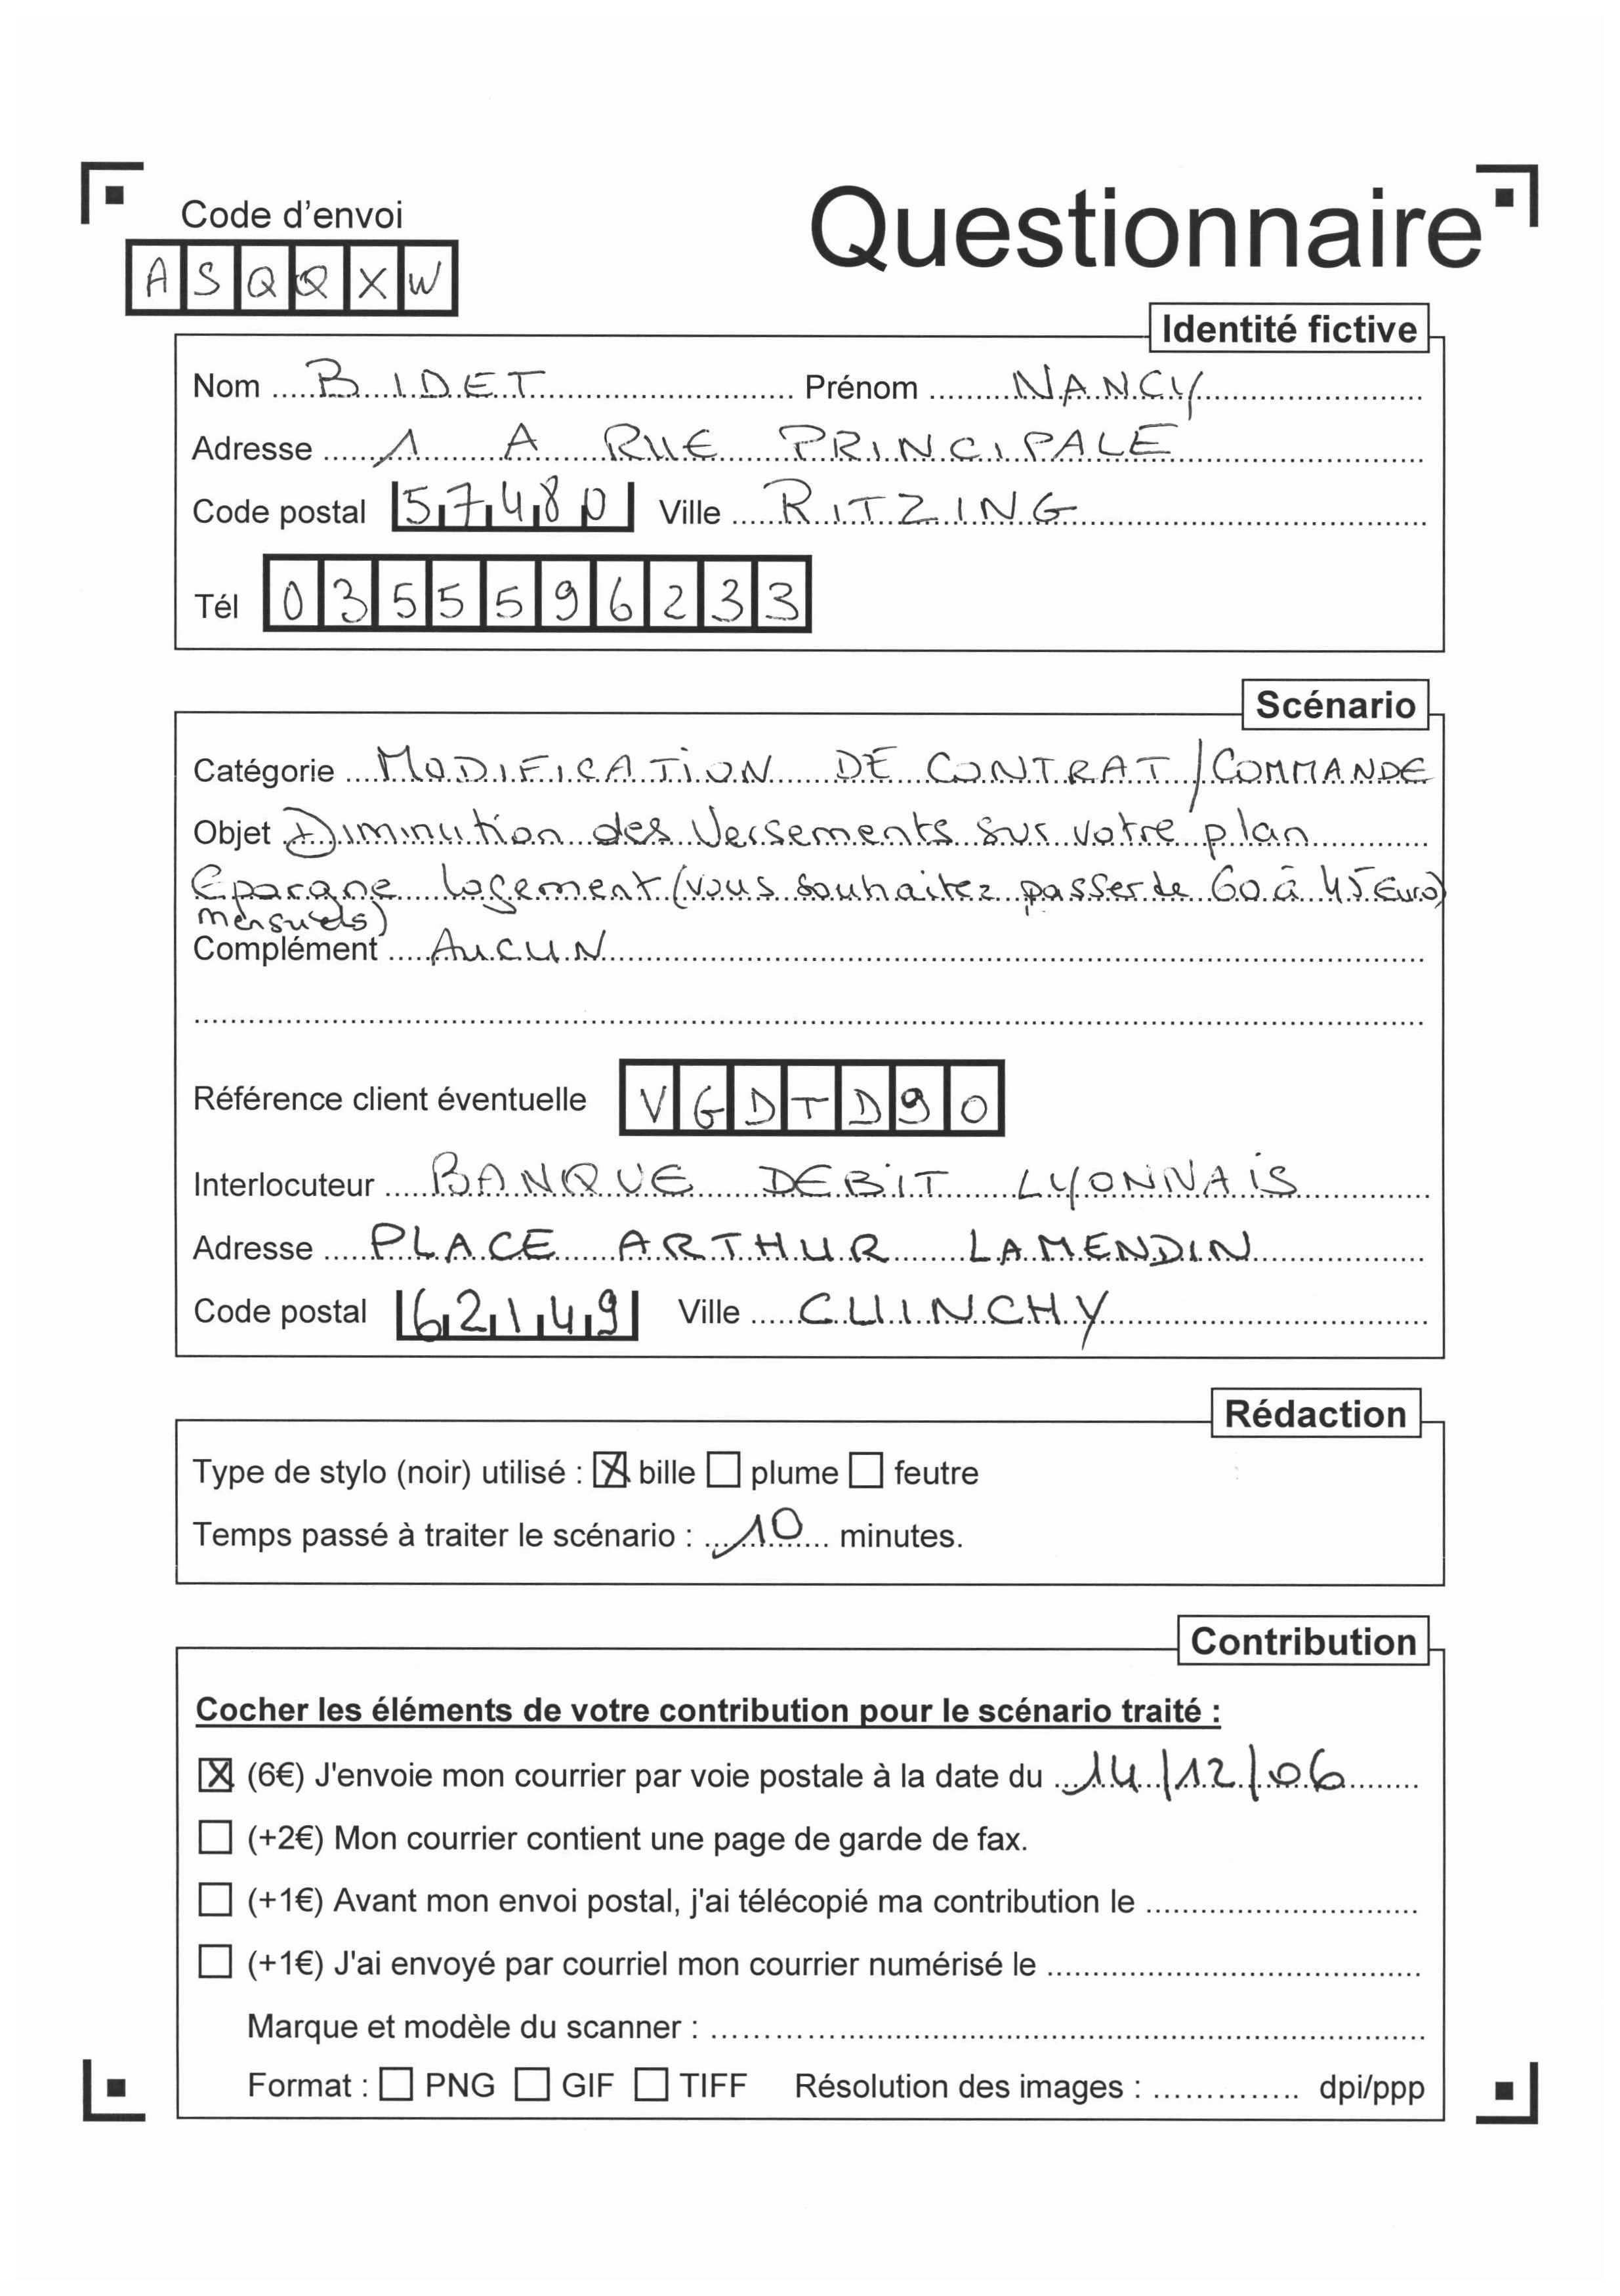 Code d'envoi
Questionnaire
ASQQXW
Identité fictive
Nom BIDET Prénom NANCY
Adresse 1 A RUE PRINCIPALE
Code postal 57480 Ville RITZING
Tél 0355596233
Scénario
Catégorie MODIFICATION DE CONTRAT / COMMANDE
Objet Diminution des Versements sur votre plan
Epargne logement (vous souhaitez passer de 60 à 45 Euro)
mensuels)
Complément AUCUN
Référence client éventuelle VGDTD90
Interlocuteur BANQUE DEBIT LYONNAIS
Adresse PLACE ARTHUR LAMENDIN
Code postal 62149 Ville CUINCHY
Rédaction
Type de stylo (noir) utilisé : ☒ bille ☐ plume ☐ feutre
Temps passé à traiter le scénario : 10 minutes.
Contribution
Cocher les éléments de votre contribution pour le scénario traité :
☒ (6€) J'envoie mon courrier par voie postale à la date du 14/12/06
☐ (+2€) Mon courrier contient une page de garde de fax.
☐ (+1€) Avant mon envoi postal, j'ai télécopié ma contribution le
☐ (+1€) J'ai envoyé par courriel mon courrier numérisé le
Marque et modèle du scanner :
Format : ☐ PNG ☐ GIF ☐ TIFF Résolution des images : dpi/ppp